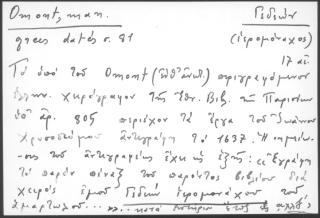 Omont, man. Γεδεών
grecs datés σ. 81 (ἱερομόναχος)
17 αἰ.
Τὸ ὑπὸ τοῦ Omont ἀνωτ.) περιγραφόμενον
ἑλλην. χειρόγραφον τῆς Ἐθν. Βιβ. τῶν Παρισίων
ὑπ' ἀρ. 805 περιέχον τὰ ἔργα τοῦ Ἰωάννου
Χρυσοστόμου ἀντεγράφη τὸ 1637. Ἡ σημείω-
σις τοῦ ἀντιγραφέως ἔχει ὡς ἑξῆς: «Ἐγράφη
τὸ παρὸν πίναξ τοῦ παρόντος βιβλίου διὰ
χειρὸς ἐμοῦ Γεδεὼν ἱερομονάχου τοῦ
ἁμαρτωλοῦ... ». κατὰ